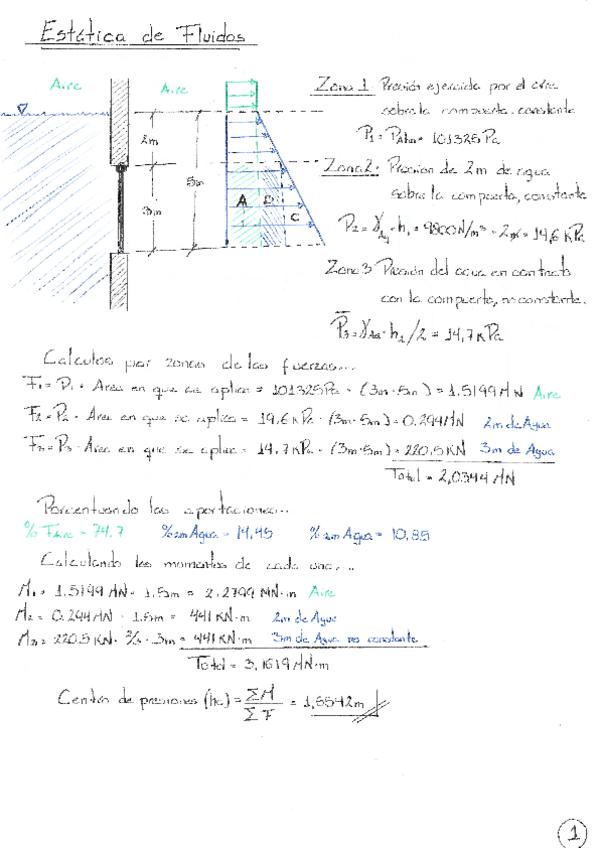 Estática de Fluidos
Aire
Aire
2m
3m
5m
A
B
C
Zona 1: Presión ejercida por el aire
sobre la compuerta. constante
P₁ = PAtm = 101325 Pa
Zona 2: Presion de 2m de agua
sobre la compuerta, constante
P₂ = γAg · h₁ = 9800N/m³ · 2m = 19,6 KPa
Zona 3: Presión del agua en contacto
con la compuerta, no constante.
P̅₃ = γAg · h₂/2 = 14,7 KPa
Calculos por zonas de las fuerzas...
F₁ = P₁ · Area en que se aplica = 101325Pa · (3m·5m) = 1.5199 MN Aire
F₂ = P₂ · Area en que se aplica = 19,6 KPa · (3m·5m) = 0.294MN 2m de Agua
F₃ = P₃ · Area en que se aplica = 14.7 KPa · (3m·5m) = 220,5KN 3m de Agua
Total = 2,0344 MN
Porcentuando las aportaciones...
% F Aire = 74.7 % 2m Agua = 14,45 % 3m Agua = 10,85
Calculando los momentos de cada una....
M₁ = 1.5199 MN · 1.5m = 2.2799 MN·m Aire
M₂ = 0.294 MN · 1.5m = 441 KN·m 2m de Agua
M₃ = 220.5 KN · 2/3 · 3m = 441 KN·m 3m de Agua no constante
Total = 3,1619 MN·m
Centro de presiones (hc) = ΣM / ΣF = 1,5542m
1